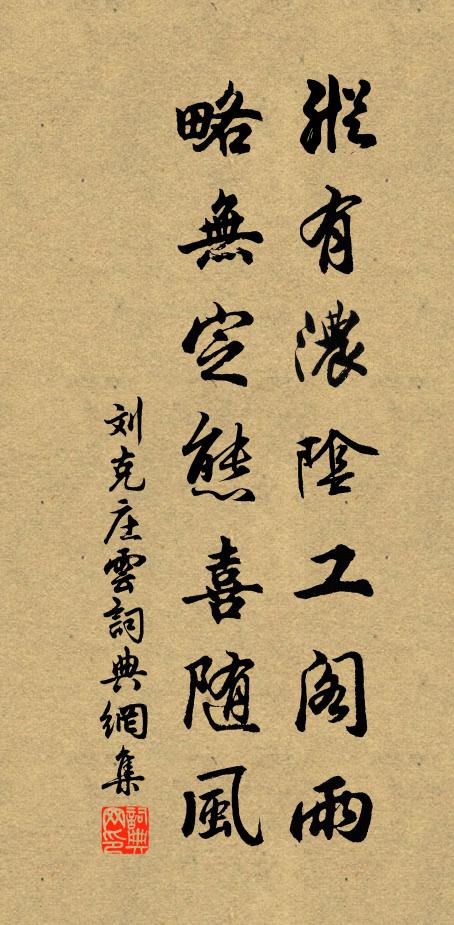 縱有濃陰工閣雨
略無定態喜随風
刘克庄雲詞典網集
詞典网印